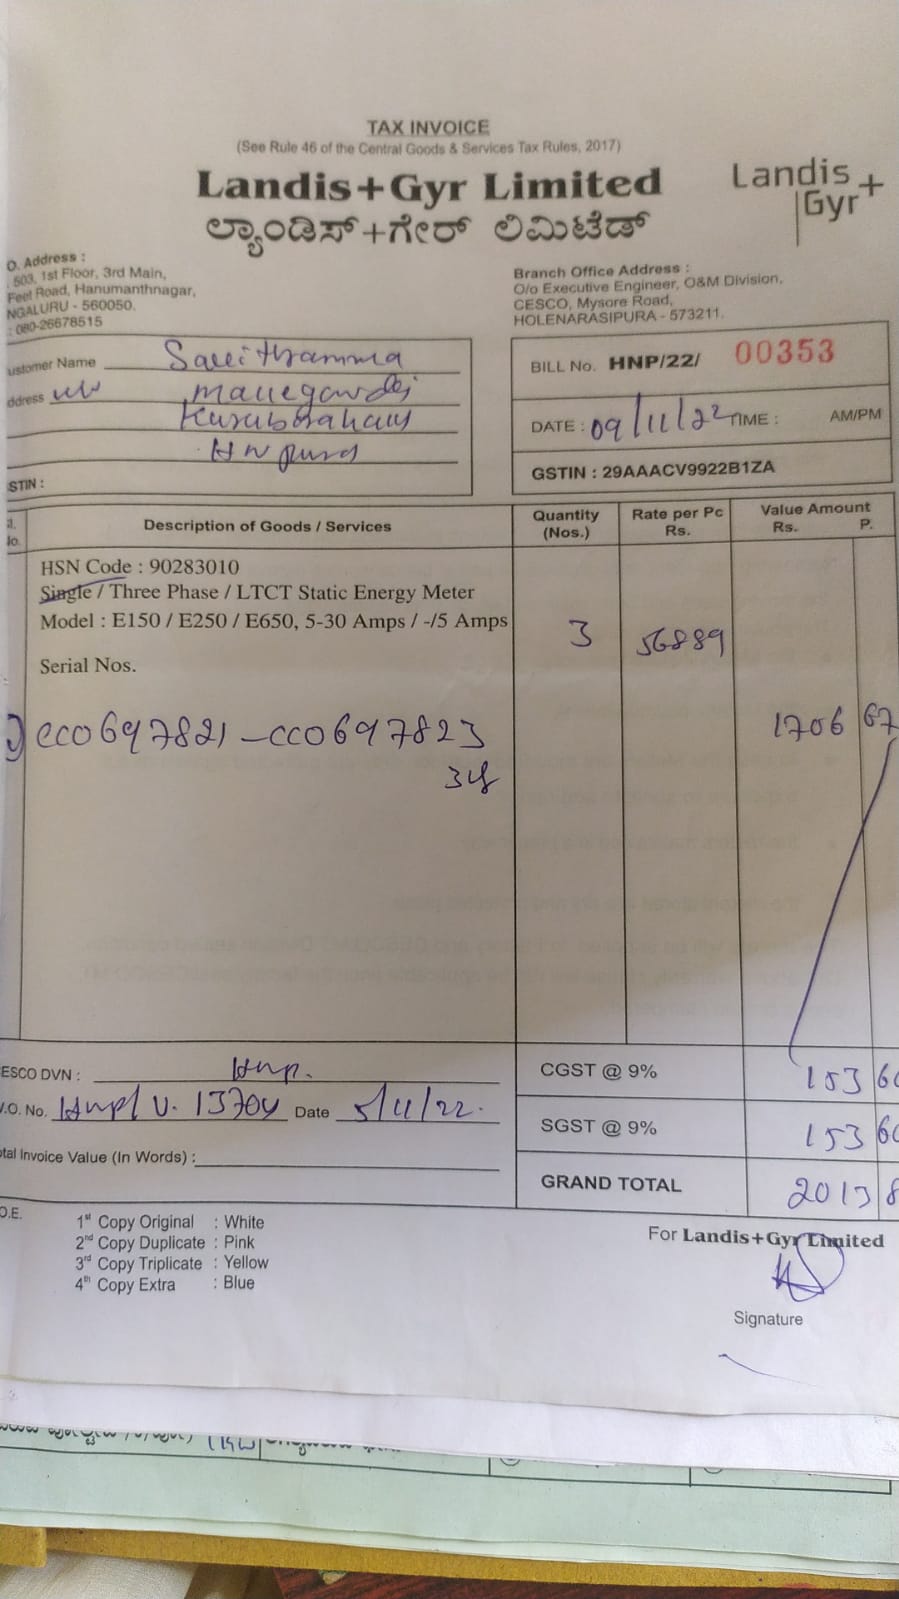 TAX INVOICE
(See Rule 46 of the Central Goods & Services Tax Rules, 2017)
Landis+Gyr Limited
ಲ್ಯಾಂಡಿಸ್+ಗೇರ್ ಲಿಮಿಟೆಡ್
Landis
Gyr+
O. Address :
503, 1st Floor, 3rd Main,
Feet Road, Hanumanthnagar,
NGALURU - 560050.
: 080-26678515
Branch Office Address :
O/o Executive Engineer, O&M Division,
CESCO, Mysore Road,
HOLENARASIPURA - 573211.
ustomer Name Savithramma
ddress w/o
BILL No. HNP/22/ 00353
DATE : 09/11/22 TIME : AM/PM
GSTIN : 29AAACV9922B1ZA
STIN :
l. No. Description of Goods / Services Quantity (Nos.) Rate per Pc Rs. Value Amount Rs. P.
HSN Code : 90283010
Single / Three Phase / LTCT Static Energy Meter
Model : E150 / E250 / E650, 5-30 Amps / -/5 Amps
3 56889
Serial Nos.
CC0697821 - CC0697823
1706 67
ESCO DVN : Hnp.
CGST @ 9% 153 60
.O. No. Hnp/ V. 13704 Date 5/11/22.
SGST @ 9% 153 60
otal Invoice Value (In Words) :
GRAND TOTAL 2013 8
O.E.
1st Copy Original : White
2nd Copy Duplicate : Pink
3rd Copy Triplicate : Yellow
4th Copy Extra : Blue
For Landis+Gyr Limited
Signature